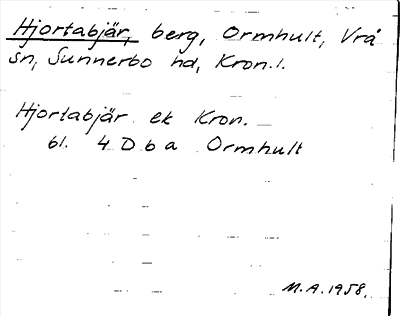 Hjortabjär, berg, Ormhult, Vrå
sn, Sunnerbo hd, Kron.l.
Hjortabjär ek Kron.
bl. 4 D b a Ormhult
M.A. 1958.